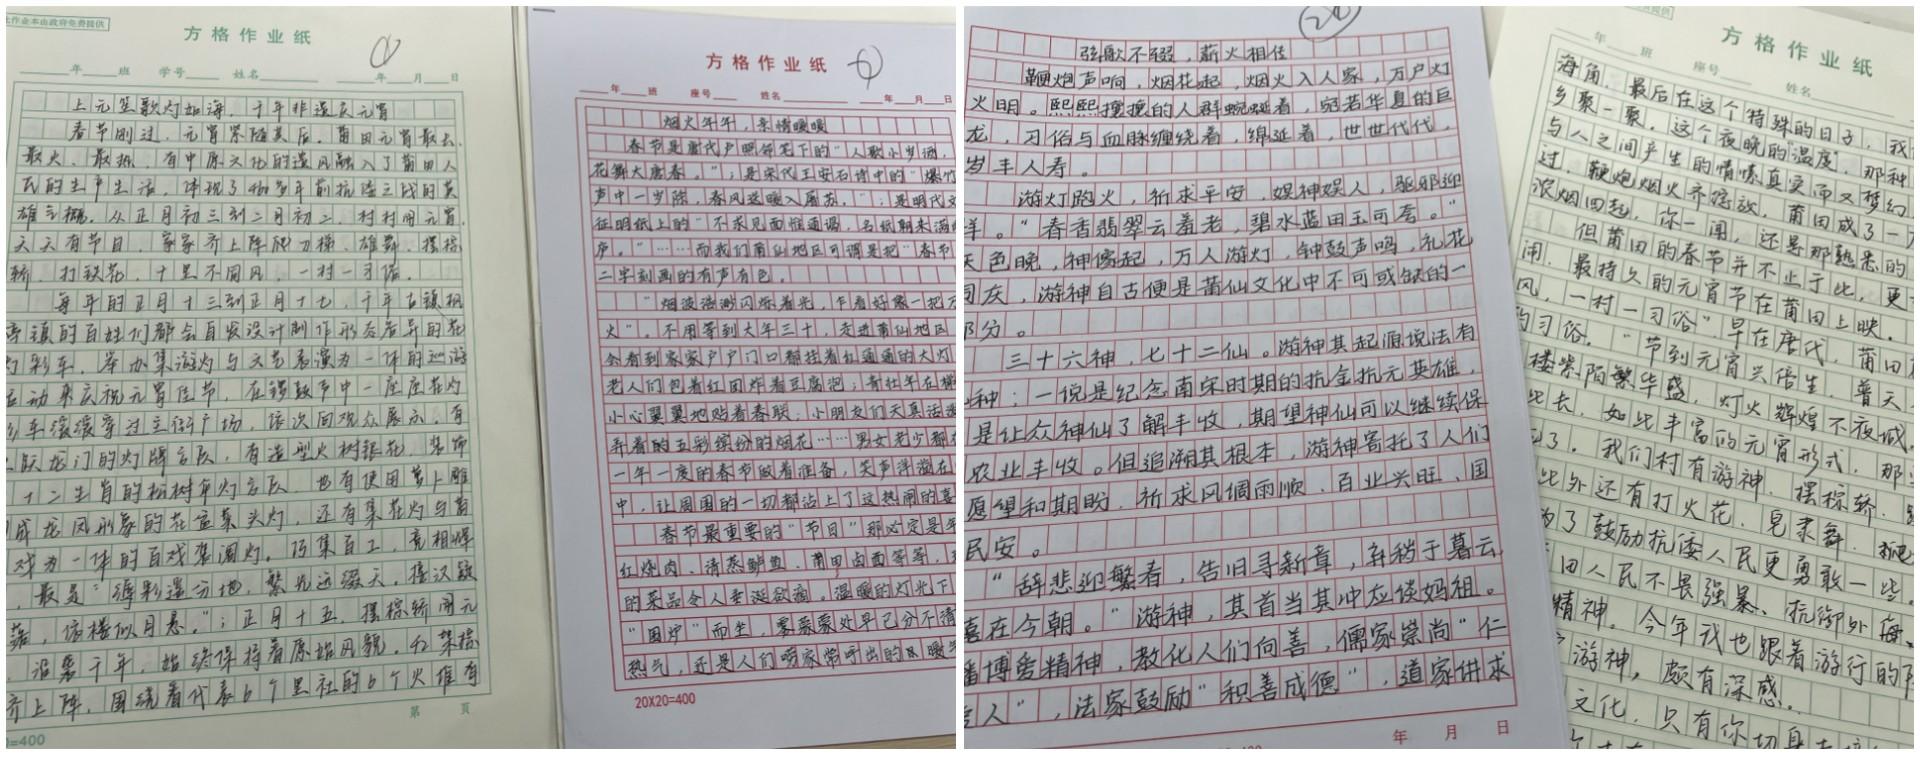 作业本由政府免费提供
方格作业纸
年 班 学号 姓名 年 月 日
上元笙歌灯如海，千年非遗庆元宵
春节刚过，元宵紧随其后，莆田元宵最长、
最火、最热，有中原文化的遗风融入了莆田人
民的生产生活，体现了460多年前抗倭之战的英
雄气概。从正月初三到二月初二，村村闹元宵，
天天有节目，家家齐上阵爬刀梯、雄舞、摆棕
轿、打铁花，十里不同风，一村一习俗。
每年的正月十三到正月十七，千年古镇枫
亭镇的百姓们都会自发设计制作形态各异的花
灯彩车，举办集游灯与文艺表演为一体的巡游
活动来庆祝元宵佳节，在锣鼓声中一座座花灯
彩车缓缓穿过主街广场，依次向观众展示，有
跃龙门的灯牌方队，有造型火树银花、装饰
十二生肖的松树年灯方队，也有使用萝卜雕
成龙凤形象的花盆菜头灯，还有集花灯与莆
戏为一体的百戏装阁灯，巧集百工，竞相媲
，最是“薄彩遥分地，繁光远缀天，接汉疑
落，依楼似月悬。”；正月十五，摆棕轿闹元
，沿袭千年，始终保持着原始风貌，42架棕
齐上阵，围绕着代表6个里社的6个火堆有
第 页
=400
方格作业纸
年 班 座号 姓名 年 月 日
烟火年年，亲情暖暖
春节是唐代卢照邻笔下的“人歌小岁酒，
花舞大唐春。”；是宋代王安石诗中的“爆竹
声中一岁除，春风送暖入屠苏。”；是明代文
征明纸上的“不求见面惟通谒，名纸朝来满敝
庐。”……而我们莆仙地区可谓是把“春节”
二字刻画的有声有色。
“烟波浩渺闪烁着光，乍看好像一把
火”。不用等到大年三十，走进莆仙地区
会看到家家户户门口都挂着红通通的大灯
老人们包着红团炸着豆腐泡；青壮年在梯
小心翼翼地贴着春联；小朋友们天真活泼
弄着的五彩缤纷的烟花……男女老少都
一年一度的春节做着准备，笑声洋溢在
中，让周围的一切都沾上了这热闹的喜
春节最重要的“节目”那必定是年
红烧肉、清蒸鲈鱼、莆田卤面等等，
的菜品令人垂涎欲滴。温暖的灯光下
“围炉”而坐，雾蒙蒙处早已分不清
热气，还是人们唠家常呼出的暖气
20X20=400
弦歌不辍，薪火相传
鞭炮声响，烟花起，烟火入人家，万户灯
火明。熙熙攘攘的人群蜿蜒着，宛若华夏的巨
龙，习俗与血脉缠绕着，绵延着，世世代代，
岁丰人寿。
游灯跑火，祈求平安，娱神娱人，驱邪迎
祥。“春香翡翠云羞老，碧水蓝田玉可夸。”
天色晚，神像起，万人游灯，钟鼓声鸣，礼花
同庆，游神自古便是莆仙文化中不可或缺的一
部分。
三十六神，七十二仙。游神其起源说法有
种：一说是纪念南宋时期的抗金抗元英雄，
是让众神仙了解丰收，期望神仙可以继续保
农业丰收。但追溯其根本，游神寄托了人们
愿望和期盼，祈求风调雨顺、百业兴旺、国
民安。
“辞悲迎繁春，告旧寻新章，弃稍于暮云，
喜在今朝。”游神，其首当其冲应谈妈祖。
播博爱精神，教化人们向善，儒家崇尚“仁
爱人”，法家鼓励“积善成德”，道家讲求
年 月 日
方格作业纸
年 班 座号 姓名
海角，最后在这个特殊的日子，我
乡聚一聚。这个夜晚的“温度”，那种
与人之间产生的情愫真实而又梦幻
过，鞭炮烟火齐绽放，莆田成了一
浓烟四起，你一闻，还是那熟悉的
但莆田的春节并不止于此，更
闹、最持久的元宵节在莆田上映。
风，一村一习俗”，早在唐代，莆田
的习俗。“节到元宵兴倍生，普天
楼紫陌繁华盛，灯火辉煌不夜城。
此长，如此丰富的元宵形式，那
了。我们村有游神、摆棕轿、
此外还有打火花、皂隶舞、
为了鼓励抗倭人民更勇敢一些，
田人民不畏强暴、抗御外侮
精神。今年我也跟着游行的
游神，颇有深感。
文化，只有你切身去